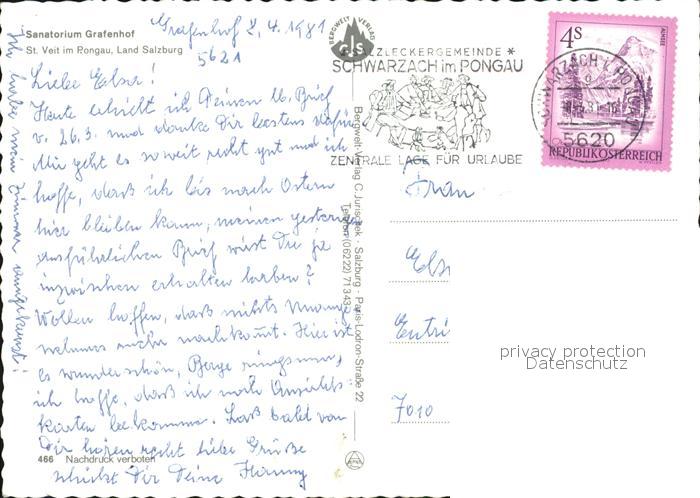 Sanatorium Grafenhof
St. Veit im Pongau, Land Salzburg
Grafenhof 2.4.1981
5621
Liebe Else!
Heute erhielt ich Deinen lb. Brief
v. 26.3. und danke Dir bestens dafür
Mir geht es soweit recht gut und ich
hoffe, daß ich bis nach Ostern
hier bleiben kann, meinen gestrigen
ausführlichen Brief wirst Du ja
inzwischen erhalten haben?
Wollen hoffen, daß nichts
mehr nachkommt. Hier ist
es wunderschön, Berge ringsum,
ich hoffe, daß ich noch Ansichts-
karten bekomme. Laß bald von
Dir hören recht liebe Grüße
schickt Dir Deine
Ich habe mein Zimmer
466 Nachdruck verboten
BERGWELT VERLAG
cjs
Bergwelt-Verlag C. Jurischek · Salzburg · Paris-Lodron-Straße 22
Telefon (06222) 71343
SALZLECKERGEMEINDE *
SCHWARZACH im PONGAU
ZENTRALE LAGE FÜR URLAUBE
4S
ALMSEE
REPUBLIK ÖSTERREICH
SCHWARZACH I. PONGAU
5620
Frau
Else
7010
privacy protection
Datenschutz